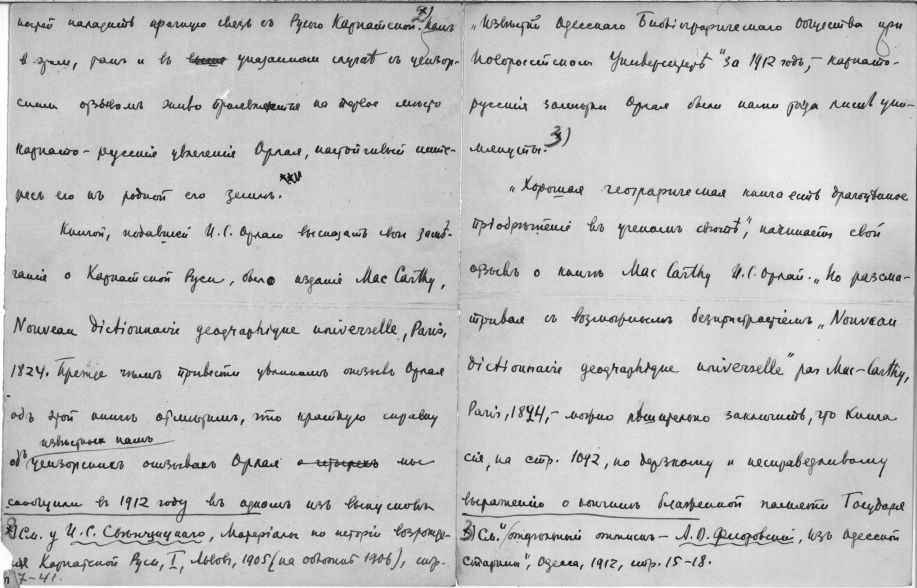 послѣ наладить прочную связь съ Русью Карпатской. 2) Какъ
въ этомъ, такъ и въ указанномъ случаѣ съ цензор-
скимъ отзывомъ живо на первое мѣсто
карпато-русскія увлеченія Орлая, настойчивый инте-
ресъ его къ родной его землѣ.
Книгой, подавшей И.С. Орлаю высказать свои замѣ-
чанія о Карпатской Руси, было изданіе Mac Carthy,
Nouveau dictionnaire geographique universelle, Paris,
1824. Прежде чѣмъ привести цѣликомъ отзывъ Орлая
объ этой книгѣ отмѣтимъ, что краткую справку
извѣстныхъ намъ
объ цензорскихъ отзывахъ Орлая мы
сообщили въ 1912 году въ одномъ изъ выпусковъ
2) См. у И.С. Свѣнцицкаго, Матеріалы по исторіи возрожде-
нія Карпатской Руси, I, Львовъ, 1905 (на обложкѣ 1906), стр.
37-41.
„Извѣстій Одесскаго Библіографическаго Общества при
Новороссійскомъ Университетѣ" за 1912 годъ, – карпато-
русскія замѣтки Орлая были нами тогда лишь упо-
мянуты. 3)
„Хорошая географическая книга есть драгоцѣнное
пріобрѣтеніе въ ученомъ свѣтѣ", начинаетъ свой
отзывъ о книгѣ Mac Carthy И.С. Орлай. „Но разсма-
тривая съ возможнымъ безпристрастіемъ „Nouveau
dictionnaire geographique universelle" par Mac-Carthy,
Paris, 1824, – можно рѣшительно заключить, что книга
сія, на стр. 1092, по дерзкому и несправедливому
выраженію о кончинѣ блаженной памяти Государя
3) См. отдѣльный оттискъ – А.В. Флоровскій, изъ Одесской
старины", Одесса, 1912, стр. 15-18.